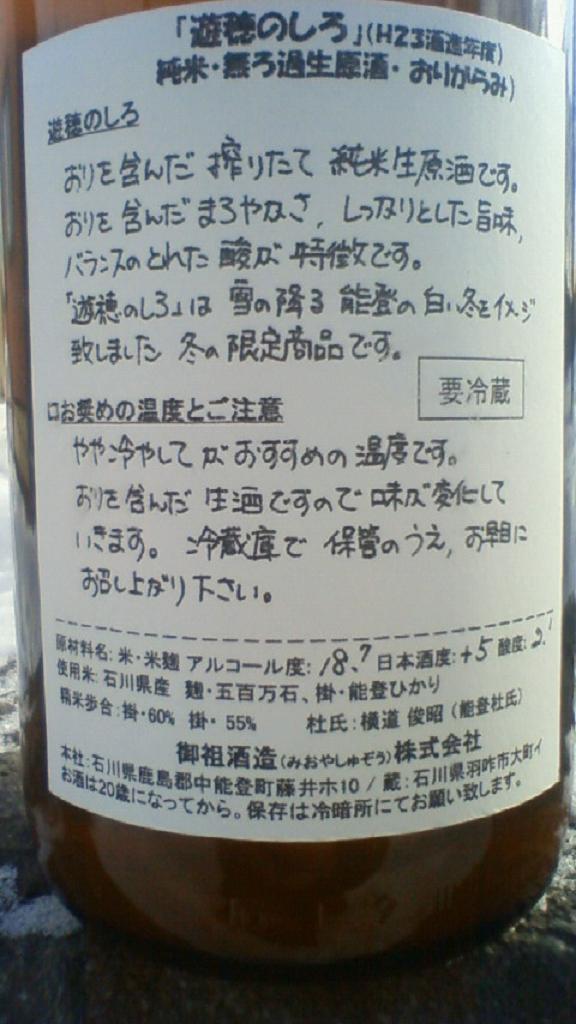 「遊穂のしろ」(H23酒造年度)
純米・無ろ過生原酒・おりがらみ)
遊穂のしろ
おりを含んだ 搾りたて 純米生原酒です。
おりを含んだ まろやかさ、しっかりとした旨味、
バランスのとれた 酸が 特徴です。
「遊穂のしろ」は 雪の降る 能登の白い冬をイメージ
致しました 冬の限定商品です。
要冷蔵
□お奨めの温度とご注意
やや冷やして がおすすめの 温度です。
おりを含んだ 生酒ですので 味が変化して
いきます。 冷蔵庫で 保管のうえ、お早目に
お召し上がり下さい。
原材料名:米・米麹 アルコール度:18.7 日本酒度:+5 酸度:2.1
使用米:石川県産 麹・五百万石、掛・能登ひかり
精米歩合:掛・60% 掛・55% 杜氏:横道 俊昭(能登杜氏)
御祖酒造(みおやしゅぞう)株式会社
本社:石川県鹿島郡中能登町藤井ホ10 / 蔵:石川県羽咋市大町イ
お酒は20歳になってから。保存は冷暗所にてお願い致します。